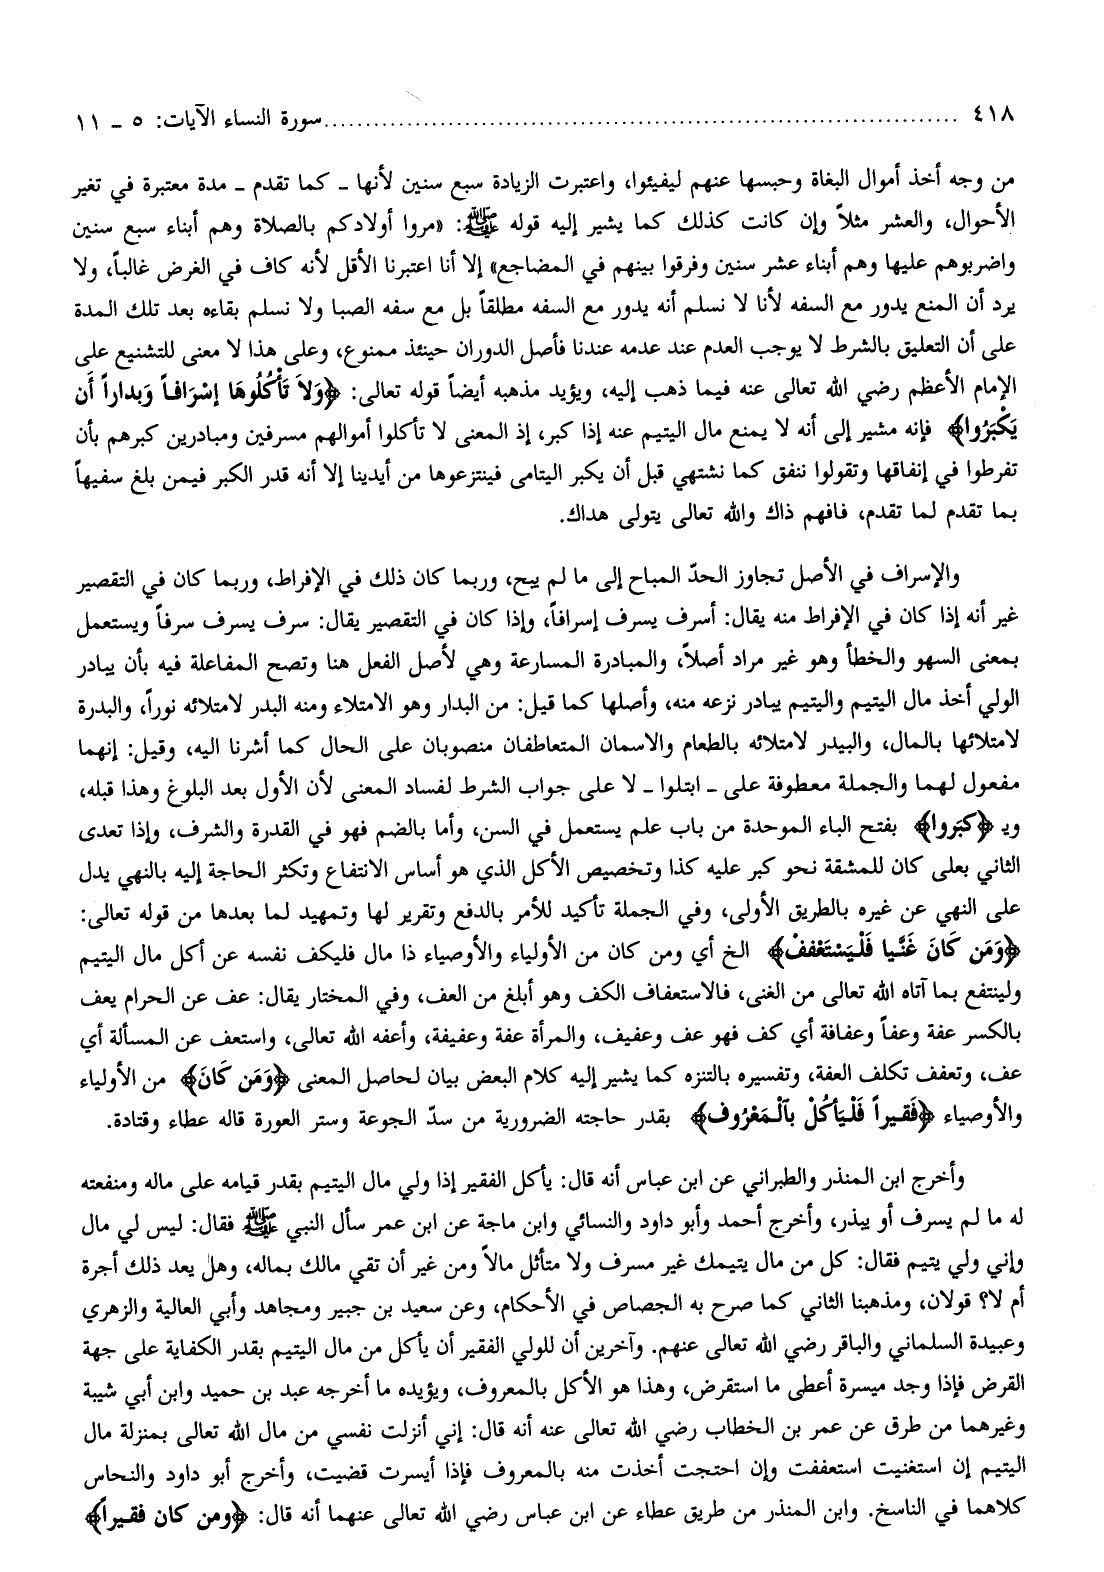 ٤١٨ ........................................................................ سورة النساء الآيات: ٥ ـ ١١
من وجه أخذ أموال البغاة وحبسها عنهم ليفيئوا، واعتبرت الزيادة سبع سنين لأنها ـ كما تقدم ـ مدة معتبرة في تغير
الأحوال، والعشر مثلاً وإن كانت كذلك كما يشير إليه قوله ﷺ: «مروا أولادكم بالصلاة وهم أبناء سبع سنين
واضربوهم عليها وهم أبناء عشر سنين وفرقوا بينهم في المضاجع» إلا أنا اعتبرنا الأقل لأنه كاف في الغرض غالباً، ولا
يرد أن المنع يدور مع السفه لأنا لا نسلم أنه يدور مع السفه مطلقاً بل مع سفه الصبا ولا نسلم بقاءه بعد تلك المدة
على أن التعليق بالشرط لا يوجب العدم عند عدمه عندنا فأصل الدوران حينئذ ممنوع، وعلى هذا لا معنى للتشنيع على
الإمام الأعظم رضي الله تعالى عنه فيما ذهب إليه، ويؤيد مذهبه أيضاً قوله تعالى: ﴿وَلاَ تَأْكُلُوهَا إِسْرَافاً وَبداراً أَن
يَكْبَرُوا﴾ فإنه مشير إلى أنه لا يمنع مال اليتيم عنه إذا كبر، إذ المعنى لا تأكلوا أموالهم مسرفين ومبادرين كبرهم بأن
تفرطوا في إنفاقها وتقولوا ننفق كما نشتهي قبل أن يكبر اليتامى فينتزعوها من أيدينا إلا أنه قدر الكبر فيمن بلغ سفيهاً
بما تقدم لما تقدم، فافهم ذاك والله تعالى يتولى هداك.
والإسراف في الأصل تجاوز الحدّ المباح إلى ما لم يبح، وربما كان ذلك في الإفراط، وربما كان في التقصير
غير أنه إذا كان في الإفراط منه يقال: أسرف يسرف إسرافاً، وإذا كان في التقصير يقال: سرف يسرف سرفاً ويستعمل
بمعنى السهو والخطأ وهو غير مراد أصلاً، والمبادرة المسارعة وهي لأصل الفعل هنا وتصح المفاعلة فيه بأن يبادر
الولي أخذ مال اليتيم واليتيم يبادر نزعه منه، وأصلها كما قيل: من البدار وهو الامتلاء ومنه البدر لامتلائه نوراً، والبدرة
لامتلائها بالمال، والبيدر لامتلائه بالطعام والاسمان المتعاطفان منصوبان على الحال كما أشرنا اليه، وقيل: إنهما
مفعول لهما والجملة معطوفة على ـ ابتلوا ـ لا على جواب الشرط لفساد المعنى لأن الأول بعد البلوغ وهذا قبله،
ويـ ﴿كبَروا﴾ بفتح الباء الموحدة من باب علم يستعمل في السن، وأما بالضم فهو في القدرة والشرف، وإذا تعدى
الثاني بعلى كان للمشقة نحو كبر عليه كذا وتخصيص الأكل الذي هو أساس الانتفاع وتكثر الحاجة إليه بالنهي يدل
على النهي عن غيره بالطريق الأولى، وفي الجملة تأكيد للأمر بالدفع وتقرير لها وتمهيد لما بعدها من قوله تعالى:
﴿وَمَن كَانَ غَنَّيا فَلْيَسْتَعْففْ﴾ الخ أي ومن كان من الأولياء والأوصياء ذا مال فليكف نفسه عن أكل مال اليتيم
ولينتفع بما آتاه الله تعالى من الغنى، فالاستعفاف الكف وهو أبلغ من العف، وفي المختار يقال: عف عن الحرام يعف
بالكسر عفة وعفاً وعفافة أي كف فهو عف وعفيف، والمرأة عفة وعفيفة، وأعفه الله تعالى، واستعف عن المسألة أي
عف، وتعفف تكلف العفة، وتفسيره بالتنزه كما يشير إليه كلام البعض بيان لحاصل المعنى ﴿وَمَن كَانَ﴾ من الأولياء
والأوصياء ﴿فَقيراً فَلْيَأكُلْ بٱلْمَعْرُوف﴾ بقدر حاجته الضرورية من سدّ الجوعة وستر العورة قاله عطاء وقتادة.
وأخرج ابن المنذر والطبراني عن ابن عباس أنه قال: يأكل الفقير إذا ولي مال اليتيم بقدر قيامه على ماله ومنفعته
له ما لم يسرف أو يبذر، وأخرج أحمد وأبو داود والنسائي وابن ماجة عن ابن عمر سأل النبي ﷺ فقال: ليس لي مال
وإني ولي يتيم فقال: كل من مال يتيمك غير مسرف ولا متأثل مالاً ومن غير أن تقي مالك بماله، وهل يعد ذلك أجرة
أم لا؟ قولان، ومذهبنا الثاني كما صرح به الجصاص في الأحكام، وعن سعيد بن جبير ومجاهد وأبي العالية والزهري
وعبيدة السلماني والباقر رضي الله تعالى عنهم. وآخرين أن للولي الفقير أن يأكل من مال اليتيم بقدر الكفاية على جهة
القرض فإذا وجد ميسرة أعطى ما استقرض، وهذا هو الأكل بالمعروف، ويؤيده ما أخرجه عبد بن حميد وابن أبي شيبة
وغيرهما من طرق عن عمر بن الخطاب رضي الله تعالى عنه أنه قال: إني أنزلت نفسي من مال الله تعالى بمنزلة مال
اليتيم إن استغنيت استعففت وإن احتجت أخذت منه بالمعروف فإذا أيسرت قضيت، وأخرج أبو داود والنحاس
كلاهما في الناسخ. وابن المنذر من طريق عطاء عن ابن عباس رضي الله تعالى عنهما أنه قال: ﴿ومن كان فقيراً﴾